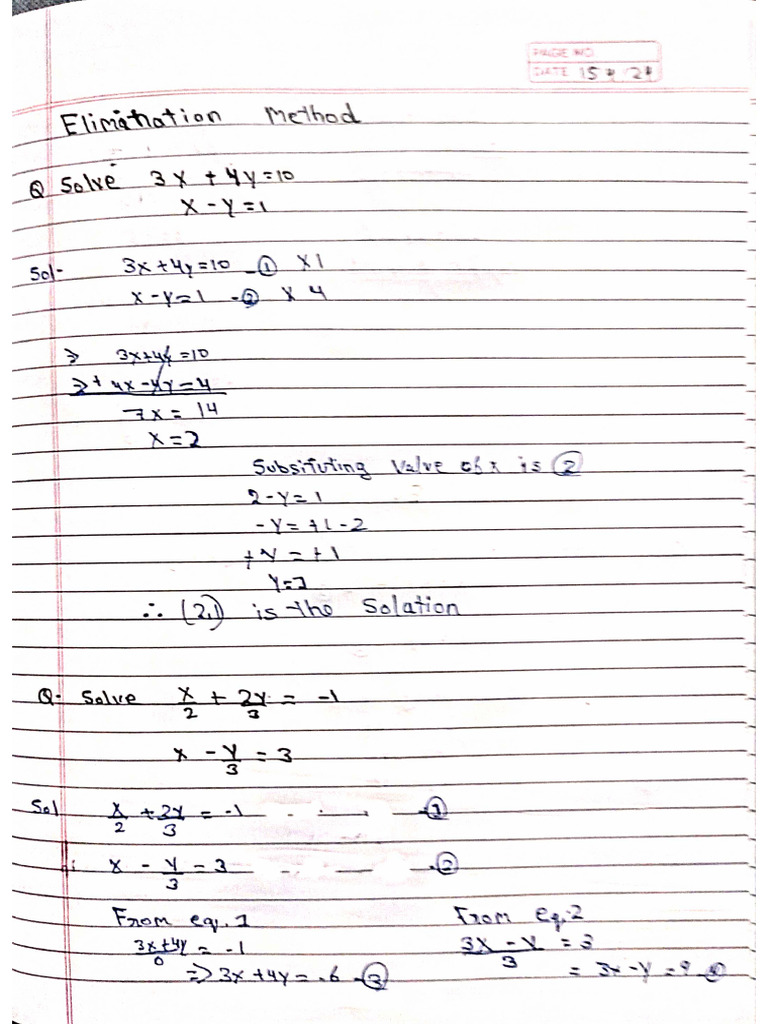 PAGE NO
DATE 15 24
Elimination Method
Q Solve 3x + 4y = 10
x - y = 1
Sol- 3x + 4y = 10 - ① x 1
x - y = 1 - ② x 4
⇒ 3x + 4y = 10
⇒ + 4x - 4y = 4
7x = 14
x = 2
Subsituting Valve of x is ②
2 - y = 1
- y = +1 - 2
+ y = + 1
y = 1
∴ (2,1) is the Solation
Q- Solve x/2 + 2y/3 = -1
x - y/3 = 3
Sol x/2 + 2y/3 = -1 - - - - ①
x - y/3 = 3 - - - - ②
From eq. 1 From eq. 2
3x+4y/6 = -1 3x - y/3 = 3
⇒ 3x + 4y = -6 - ③ = 3x - y = 9 ④